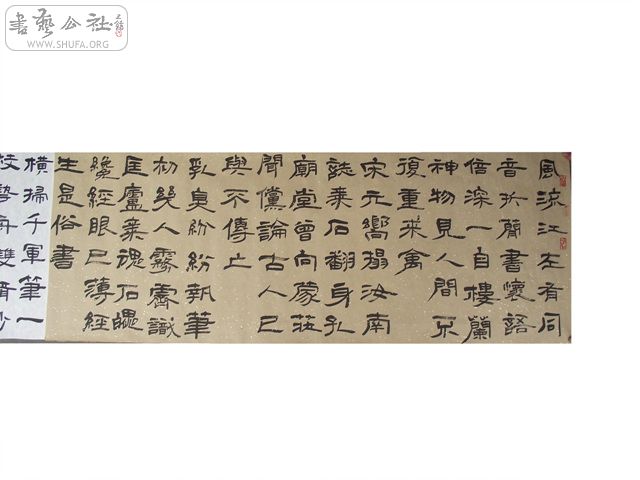 書藝公社
WWW.SHUFA.ORG
風流江左有同
音折簡書懷語
倍深一自樓蘭
神物見人間不
復重来禽
宋元嚮搨汝南
誌棗石翻身孔
廟堂曾向蒙莊
聞儻論古人已
與不傳亡
乳臭紛紛執筆
初幾人霧霽識
匡廬棗魂石魄
纔經眼已薄經
生是俗書
橫掃千軍筆一